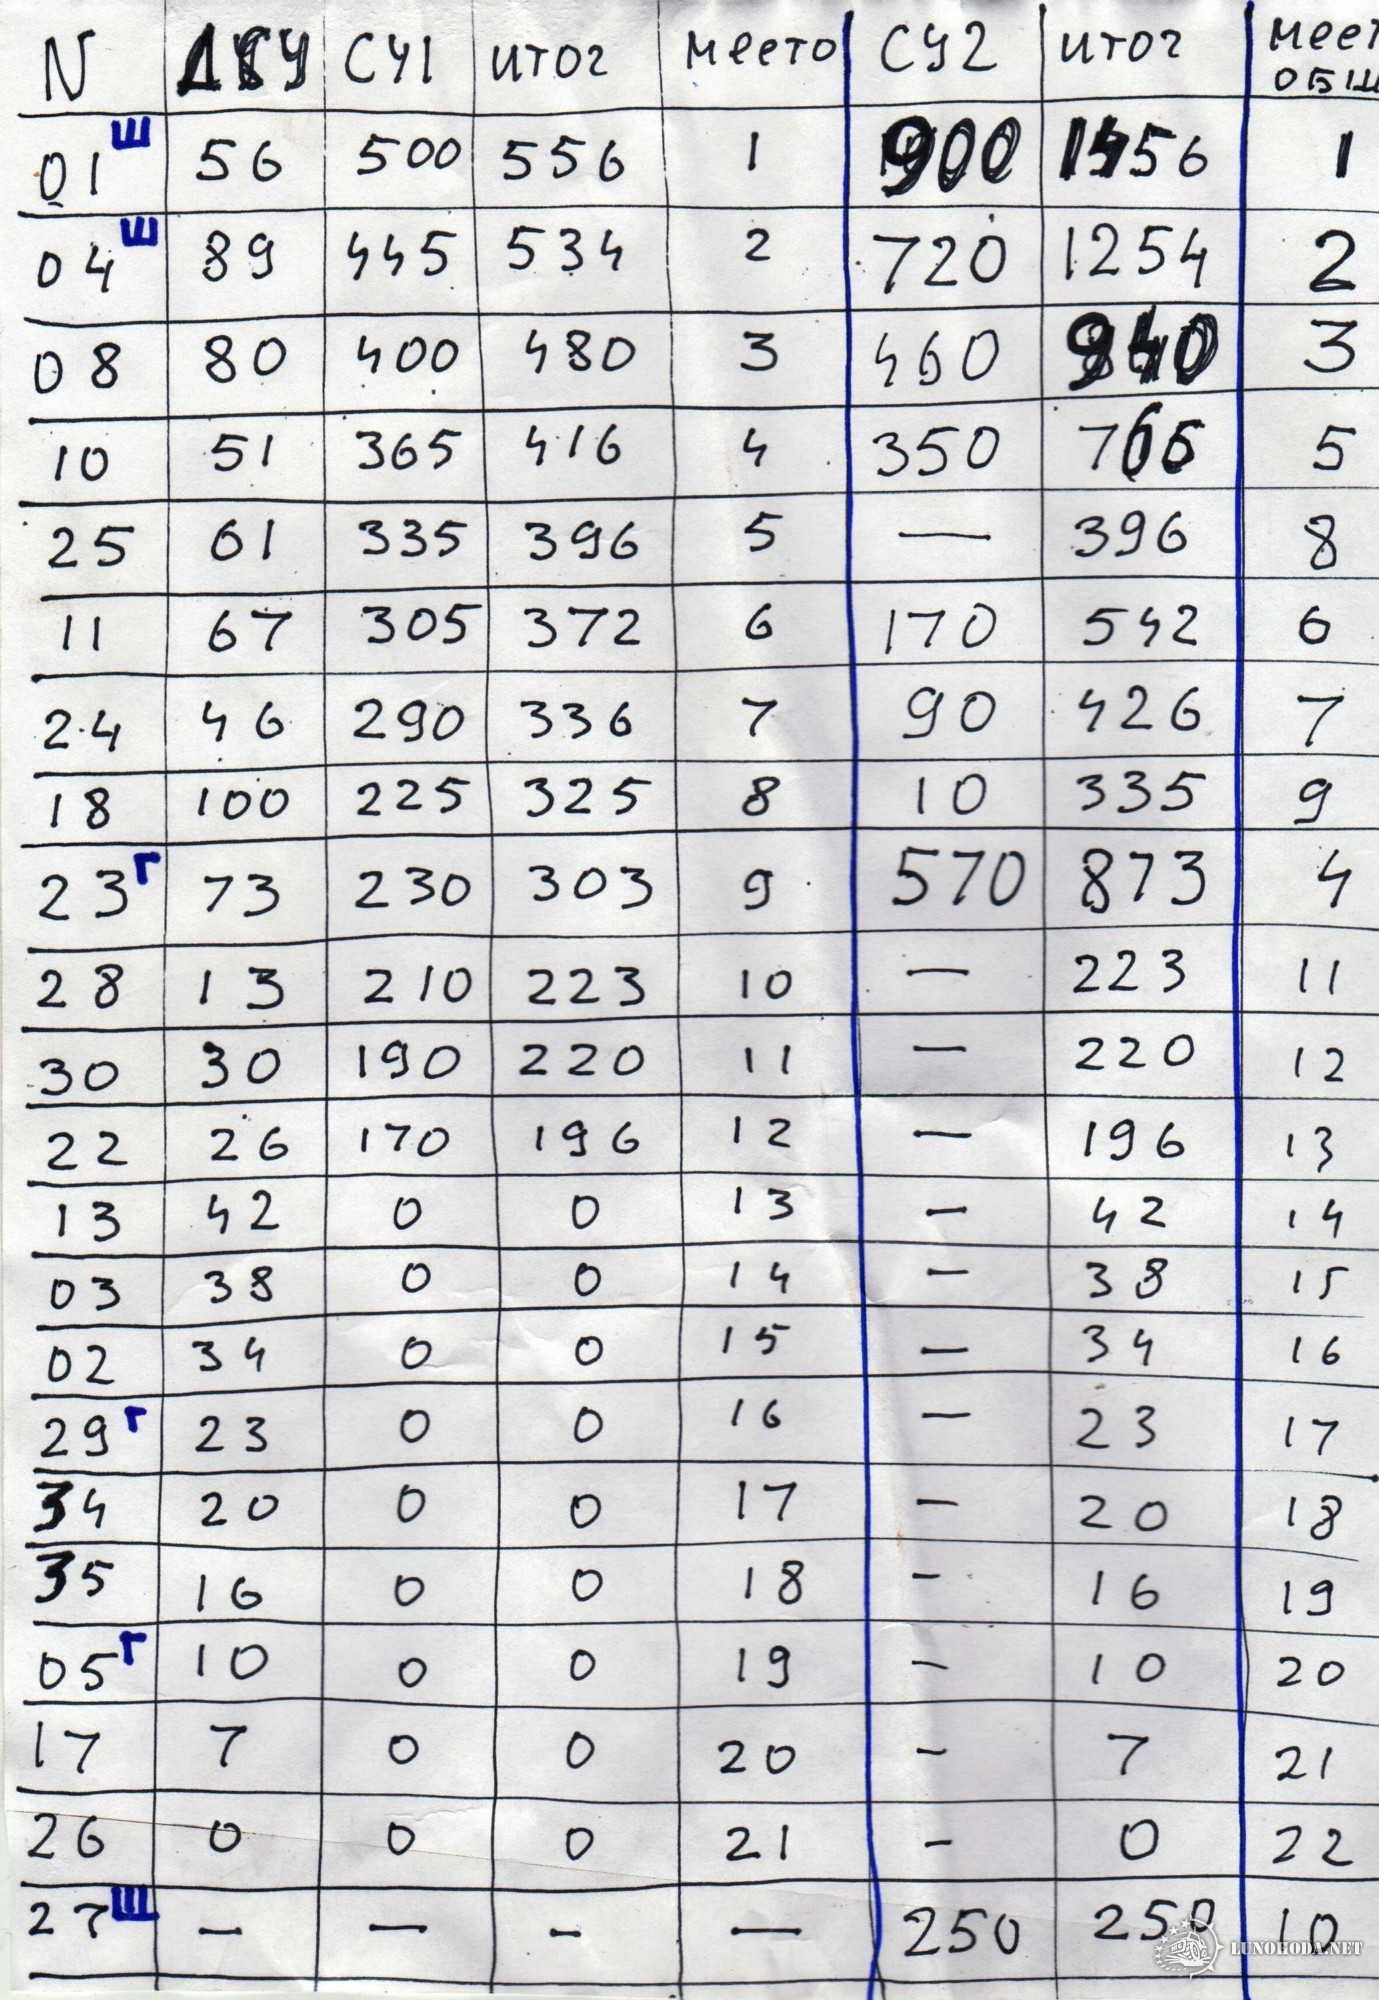 N ДСУ СУ1 ИТОГ МЕСТО СУ2 ИТОГ МЕСТ
ОБЩ
01 Ш 56 500 556 1 900 1456 1
04 Ш 89 445 534 2 720 1254 2
08 80 400 480 3 460 940 3
10 51 365 416 4 350 766 5
25 61 335 396 5 — 396 8
11 67 305 372 6 170 542 6
24 46 290 336 7 90 426 7
18 100 225 325 8 10 335 9
23 Г 73 230 303 9 570 873 4
28 13 210 223 10 — 223 11
30 30 190 220 11 — 220 12
22 26 170 196 12 — 196 13
13 42 0 0 13 — 42 14
03 38 0 0 14 — 38 15
02 34 0 0 15 — 34 16
29 Г 23 0 0 16 — 23 17
34 20 0 0 17 — 20 18
35 16 0 0 18 - 16 19
05 Г 10 0 0 19 - 10 20
17 7 0 0 20 - 7 21
26 0 0 0 21 - 0 22
27 Ш — — - — 250 250 10
LUNOHODA.NET